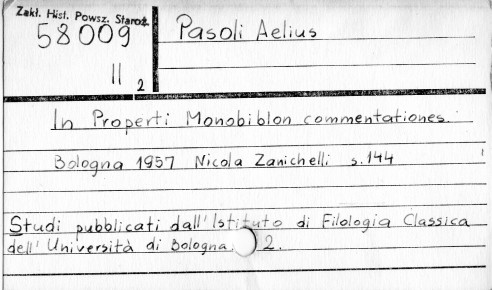 Zakł. Hist. Powsz. Staroż.
58009
II 2
Pasoli Aelius
In Properti Monobiblon commentationes.
Bologna 1957 Nicola Zanichelli s.144
Studi pubblicati dall'Istituto di Filologia Classica
dell'Università di Bologna. 2.